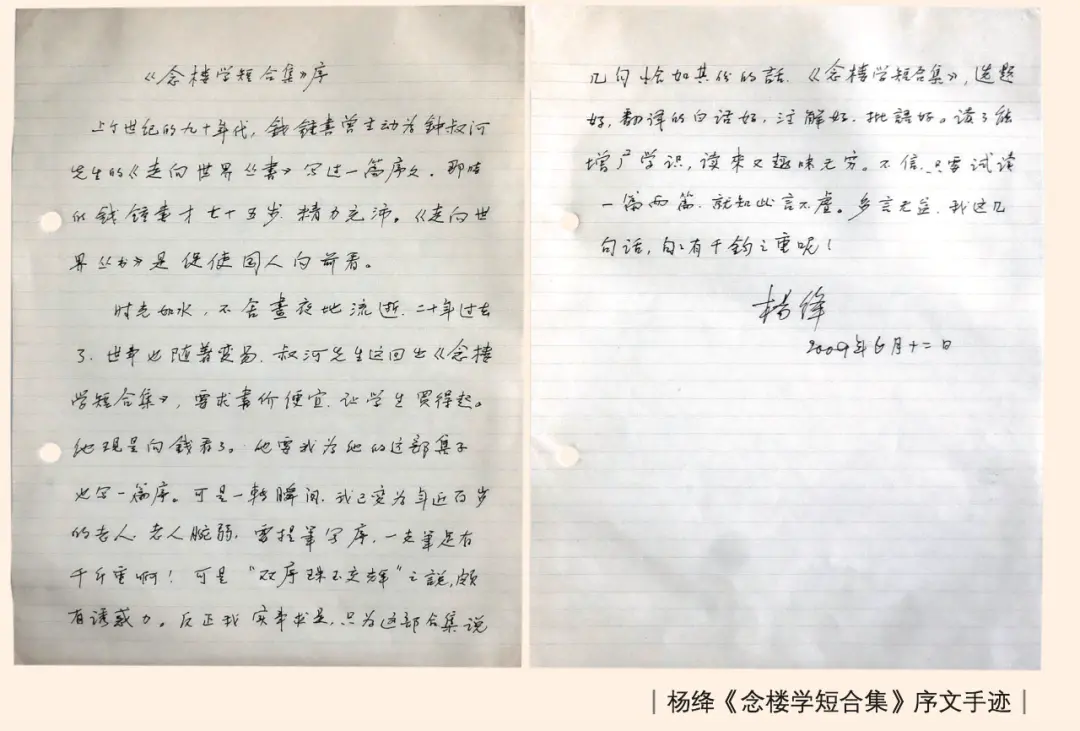 《念楼学短合集》序
上个世纪的九十年代，錢鍾書曾主动为钟叔河
先生的《走向世界丛書》写过一篇序文。那时
的錢鍾書才七十五岁，精力充沛。《走向世
界丛书》是促使国人向前看。
时光如水，不舍晝夜地流逝，二十年过去
了，世事也随着变易。叔河先生这回出《念楼
学短合集》，要求書价便宜，让学生買得起。
他现是向錢看了。他要我为他的这部集子
也写一篇序。可是一转瞬间，我已变为年近百岁
的老人。老人腕弱，要提筆写序，一支筆足有
千斤重啊！可是“双序珠玉交辉”之說，頗
有诱惑力。反正我实事求是，只为这部合集说
几句恰如其份的話。《念楼学短合集》，选题
好，翻译的白话好，注解好，批語好。读了能
增广学识，读来又趣味无穷。不信，只要试读
一篇两篇，就知此言不虚。多言无益，我这几
句话，句句有千钧之重呢！
杨绛
2009年6月十二日
|杨绛《念楼学短合集》序文手迹|